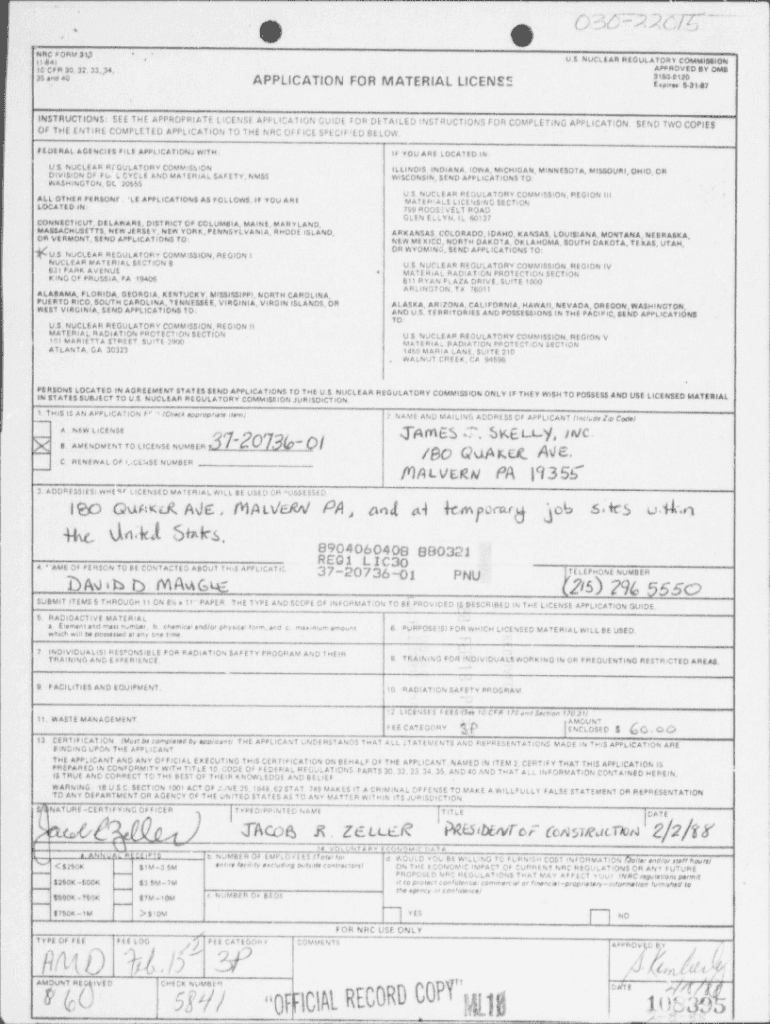 030-22015
NRC FORM 313
(1-84)
10 CFR 30, 32, 33, 34,
35 and 40
APPLICATION FOR MATERIAL LICENSE
U.S. NUCLEAR REGULATORY COMMISSION
APPROVED BY OMB
3150-0120
Expires 5-31-87
INSTRUCTIONS: SEE THE APPROPRIATE LICENSE APPLICATION GUIDE FOR DETAILED INSTRUCTIONS FOR COMPLETING APPLICATION. SEND TWO COPIES
OF THE ENTIRE COMPLETED APPLICATION TO THE NRC OFFICE SPECIFIED BELOW.
FEDERAL AGENCIES FILE APPLICATIONS WITH:
U.S. NUCLEAR REGULATORY COMMISSION
DIVISION OF FUEL CYCLE AND MATERIAL SAFETY, NMSS
WASHINGTON, DC 20555
ALL OTHER PERSONS FILE APPLICATIONS AS FOLLOWS, IF YOU ARE
LOCATED IN:
CONNECTICUT, DELAWARE, DISTRICT OF COLUMBIA, MAINE, MARYLAND,
MASSACHUSETTS, NEW JERSEY, NEW YORK, PENNSYLVANIA, RHODE ISLAND,
OR VERMONT, SEND APPLICATIONS TO:
* U.S. NUCLEAR REGULATORY COMMISSION, REGION I
NUCLEAR MATERIAL SECTION B
631 PARK AVENUE
KING OF PRUSSIA, PA 19406
ALABAMA, FLORIDA, GEORGIA, KENTUCKY, MISSISSIPPI, NORTH CAROLINA,
PUERTO RICO, SOUTH CAROLINA, TENNESSEE, VIRGINIA, VIRGIN ISLANDS, OR
WEST VIRGINIA, SEND APPLICATIONS TO:
U.S. NUCLEAR REGULATORY COMMISSION, REGION II
MATERIAL RADIATION PROTECTION SECTION
101 MARIETTA STREET, SUITE 2900
ATLANTA, GA 30323
IF YOU ARE LOCATED IN:
ILLINOIS, INDIANA, IOWA, MICHIGAN, MINNESOTA, MISSOURI, OHIO, OR
WISCONSIN, SEND APPLICATIONS TO:
U.S. NUCLEAR REGULATORY COMMISSION, REGION III
MATERIALS LICENSING SECTION
799 ROOSEVELT ROAD
GLEN ELLYN, IL 60137
ARKANSAS, COLORADO, IDAHO, KANSAS, LOUISIANA, MONTANA, NEBRASKA,
NEW MEXICO, NORTH DAKOTA, OKLAHOMA, SOUTH DAKOTA, TEXAS, UTAH,
OR WYOMING, SEND APPLICATIONS TO:
U.S. NUCLEAR REGULATORY COMMISSION, REGION IV
MATERIAL RADIATION PROTECTION SECTION
611 RYAN PLAZA DRIVE, SUITE 1000
ARLINGTON, TX 76011
ALASKA, ARIZONA, CALIFORNIA, HAWAII, NEVADA, OREGON, WASHINGTON,
AND U.S. TERRITORIES AND POSSESSIONS IN THE PACIFIC, SEND APPLICATIONS
TO:
U.S. NUCLEAR REGULATORY COMMISSION, REGION V
MATERIAL RADIATION PROTECTION SECTION
1450 MARIA LANE, SUITE 210
WALNUT CREEK, CA 94596
PERSONS LOCATED IN AGREEMENT STATES SEND APPLICATIONS TO THE U.S. NUCLEAR REGULATORY COMMISSION ONLY IF THEY WISH TO POSSESS AND USE LICENSED MATERIAL
IN STATES SUBJECT TO U.S. NUCLEAR REGULATORY COMMISSION JURISDICTION.
1. THIS IS AN APPLICATION FOR (Check appropriate item)
A. NEW LICENSE
X B. AMENDMENT TO LICENSE NUMBER 37-20736-01
C. RENEWAL OF LICENSE NUMBER
2. NAME AND MAILING ADDRESS OF APPLICANT (Include Zip Code)
JAMES J. SKELLY, INC.
180 QUAKER AVE.
MALVERN PA 19355
3. ADDRESS(ES) WHERE LICENSED MATERIAL WILL BE USED OR POSSESSED.
180 QUAKER AVE, MALVERN PA, and at temporary job sites within
the United States.
8904060408 880321
REG1 LIC30
37-20736-01 PNU
4. NAME OF PERSON TO BE CONTACTED ABOUT THIS APPLICATION
DAVID D MAUGLE
TELEPHONE NUMBER
(215) 296 5550
SUBMIT ITEMS 5 THROUGH 11 ON 8½ x 11" PAPER. THE TYPE AND SCOPE OF INFORMATION TO BE PROVIDED IS DESCRIBED IN THE LICENSE APPLICATION GUIDE.
5. RADIOACTIVE MATERIAL
a. Element and mass number, b. chemical and/or physical form, and c. maximum amount
which will be possessed at any one time.
6. PURPOSE(S) FOR WHICH LICENSED MATERIAL WILL BE USED.
7. INDIVIDUAL(S) RESPONSIBLE FOR RADIATION SAFETY PROGRAM AND THEIR
TRAINING AND EXPERIENCE.
8. TRAINING FOR INDIVIDUALS WORKING IN OR FREQUENTING RESTRICTED AREAS.
9. FACILITIES AND EQUIPMENT.
10. RADIATION SAFETY PROGRAM.
11. WASTE MANAGEMENT.
12. LICENSEE FEES (See 10 CFR 170 and Section 170.31)
FEE CATEGORY 3P
AMOUNT
ENCLOSED $ 60.00
13. CERTIFICATION. (Must be completed by applicant) THE APPLICANT UNDERSTANDS THAT ALL STATEMENTS AND REPRESENTATIONS MADE IN THIS APPLICATION ARE
BINDING UPON THE APPLICANT.
THE APPLICANT AND ANY OFFICIAL EXECUTING THIS CERTIFICATION ON BEHALF OF THE APPLICANT, NAMED IN ITEM 2, CERTIFY THAT THIS APPLICATION IS
PREPARED IN CONFORMITY WITH TITLE 10, CODE OF FEDERAL REGULATIONS, PARTS 30, 32, 33, 34, 35, AND 40 AND THAT ALL INFORMATION CONTAINED HEREIN,
IS TRUE AND CORRECT TO THE BEST OF THEIR KNOWLEDGE AND BELIEF.
WARNING: 18 U.S.C. SECTION 1001 ACT OF JUNE 25, 1948, 62 STAT. 749 MAKES IT A CRIMINAL OFFENSE TO MAKE A WILLFULLY FALSE STATEMENT OR REPRESENTATION
TO ANY DEPARTMENT OR AGENCY OF THE UNITED STATES AS TO ANY MATTER WITHIN ITS JURISDICTION.
SIGNATURE-CERTIFYING OFFICER
Jacob R Zeller
TYPED/PRINTED NAME
JACOB R. ZELLER
TITLE
PRESIDENT OF CONSTRUCTION
DATE
2/2/88
14. VOLUNTARY ECONOMIC DATA
a. ANNUAL RECEIPTS
<$250K
$1M-3.5M
$250K-500K
$3.5M-7M
$500K-750K
$7M-10M
$750K-1M
>$10M
b. NUMBER OF EMPLOYEES (Total for
entire facility excluding outside contractors)
c. NUMBER OF BEDS
d. WOULD YOU BE WILLING TO FURNISH COST INFORMATION (dollar and/or staff hours)
ON THE ECONOMIC IMPACT OF CURRENT NRC REGULATIONS OR ANY FUTURE
PROPOSED NRC REGULATIONS THAT MAY AFFECT YOU? (NRC regulations permit
it to protect confidential commercial or financial-proprietary-information furnished to
the agency in confidence)
YES
NO
FOR NRC USE ONLY
TYPE OF FEE
AMD
FEE LOG
Feb. 15
FEE CATEGORY
3P
COMMENTS
APPROVED BY
S Kimberly
AMOUNT RECEIVED
$60
CHECK NUMBER
5841
"OFFICIAL RECORD COPY"
ML10
DATE
108395